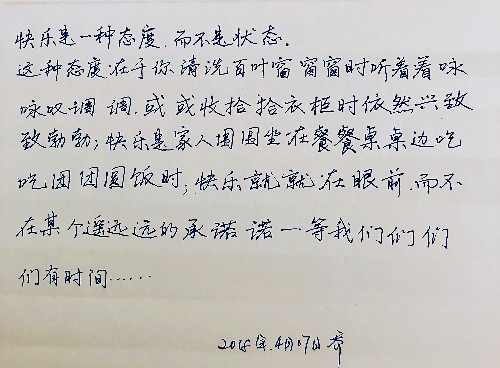 快乐是一种态度,而不是状态。
这种态度在于你清洗百叶窗窗窗时听着着咏
咏叹调调,或或收拾拾衣柜时依然兴致
致勃勃;快乐是家人围圆坐在餐餐桌桌边吃
吃团团圆饭时;快乐就就在眼前,而不
在某个遥远远的承诺诺一等我们们们们
们有时间……
4月07日